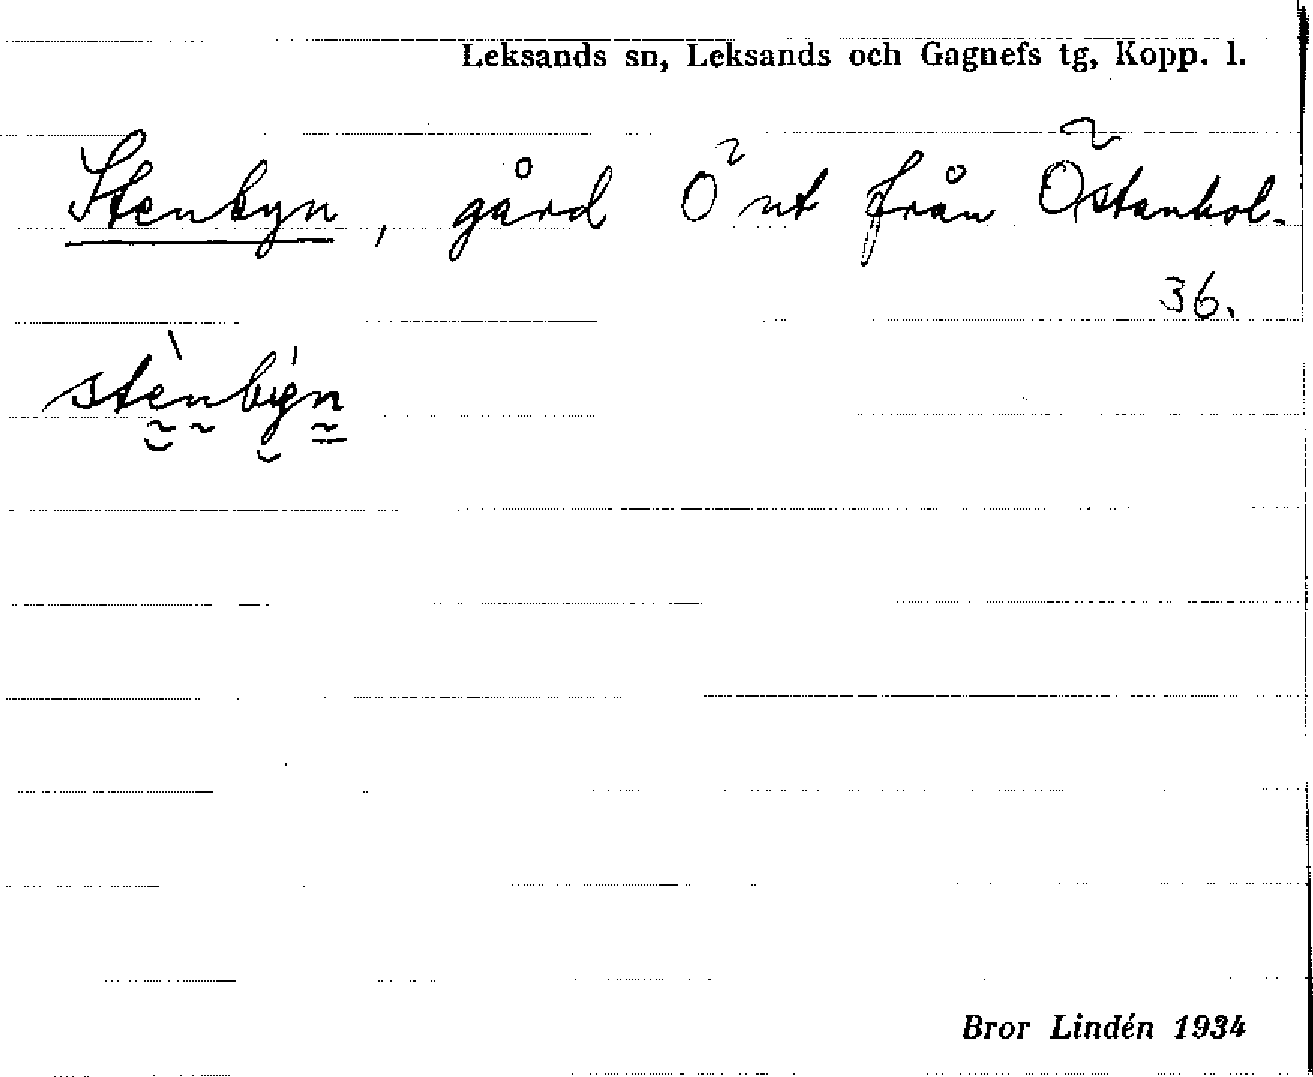 Leksands sn, Leksands och Gagnefs tg, Kopp. l.
Stenbyn, gård Ö nt från Östanhol.
36.
stènbýn
Bror Lindén 1934